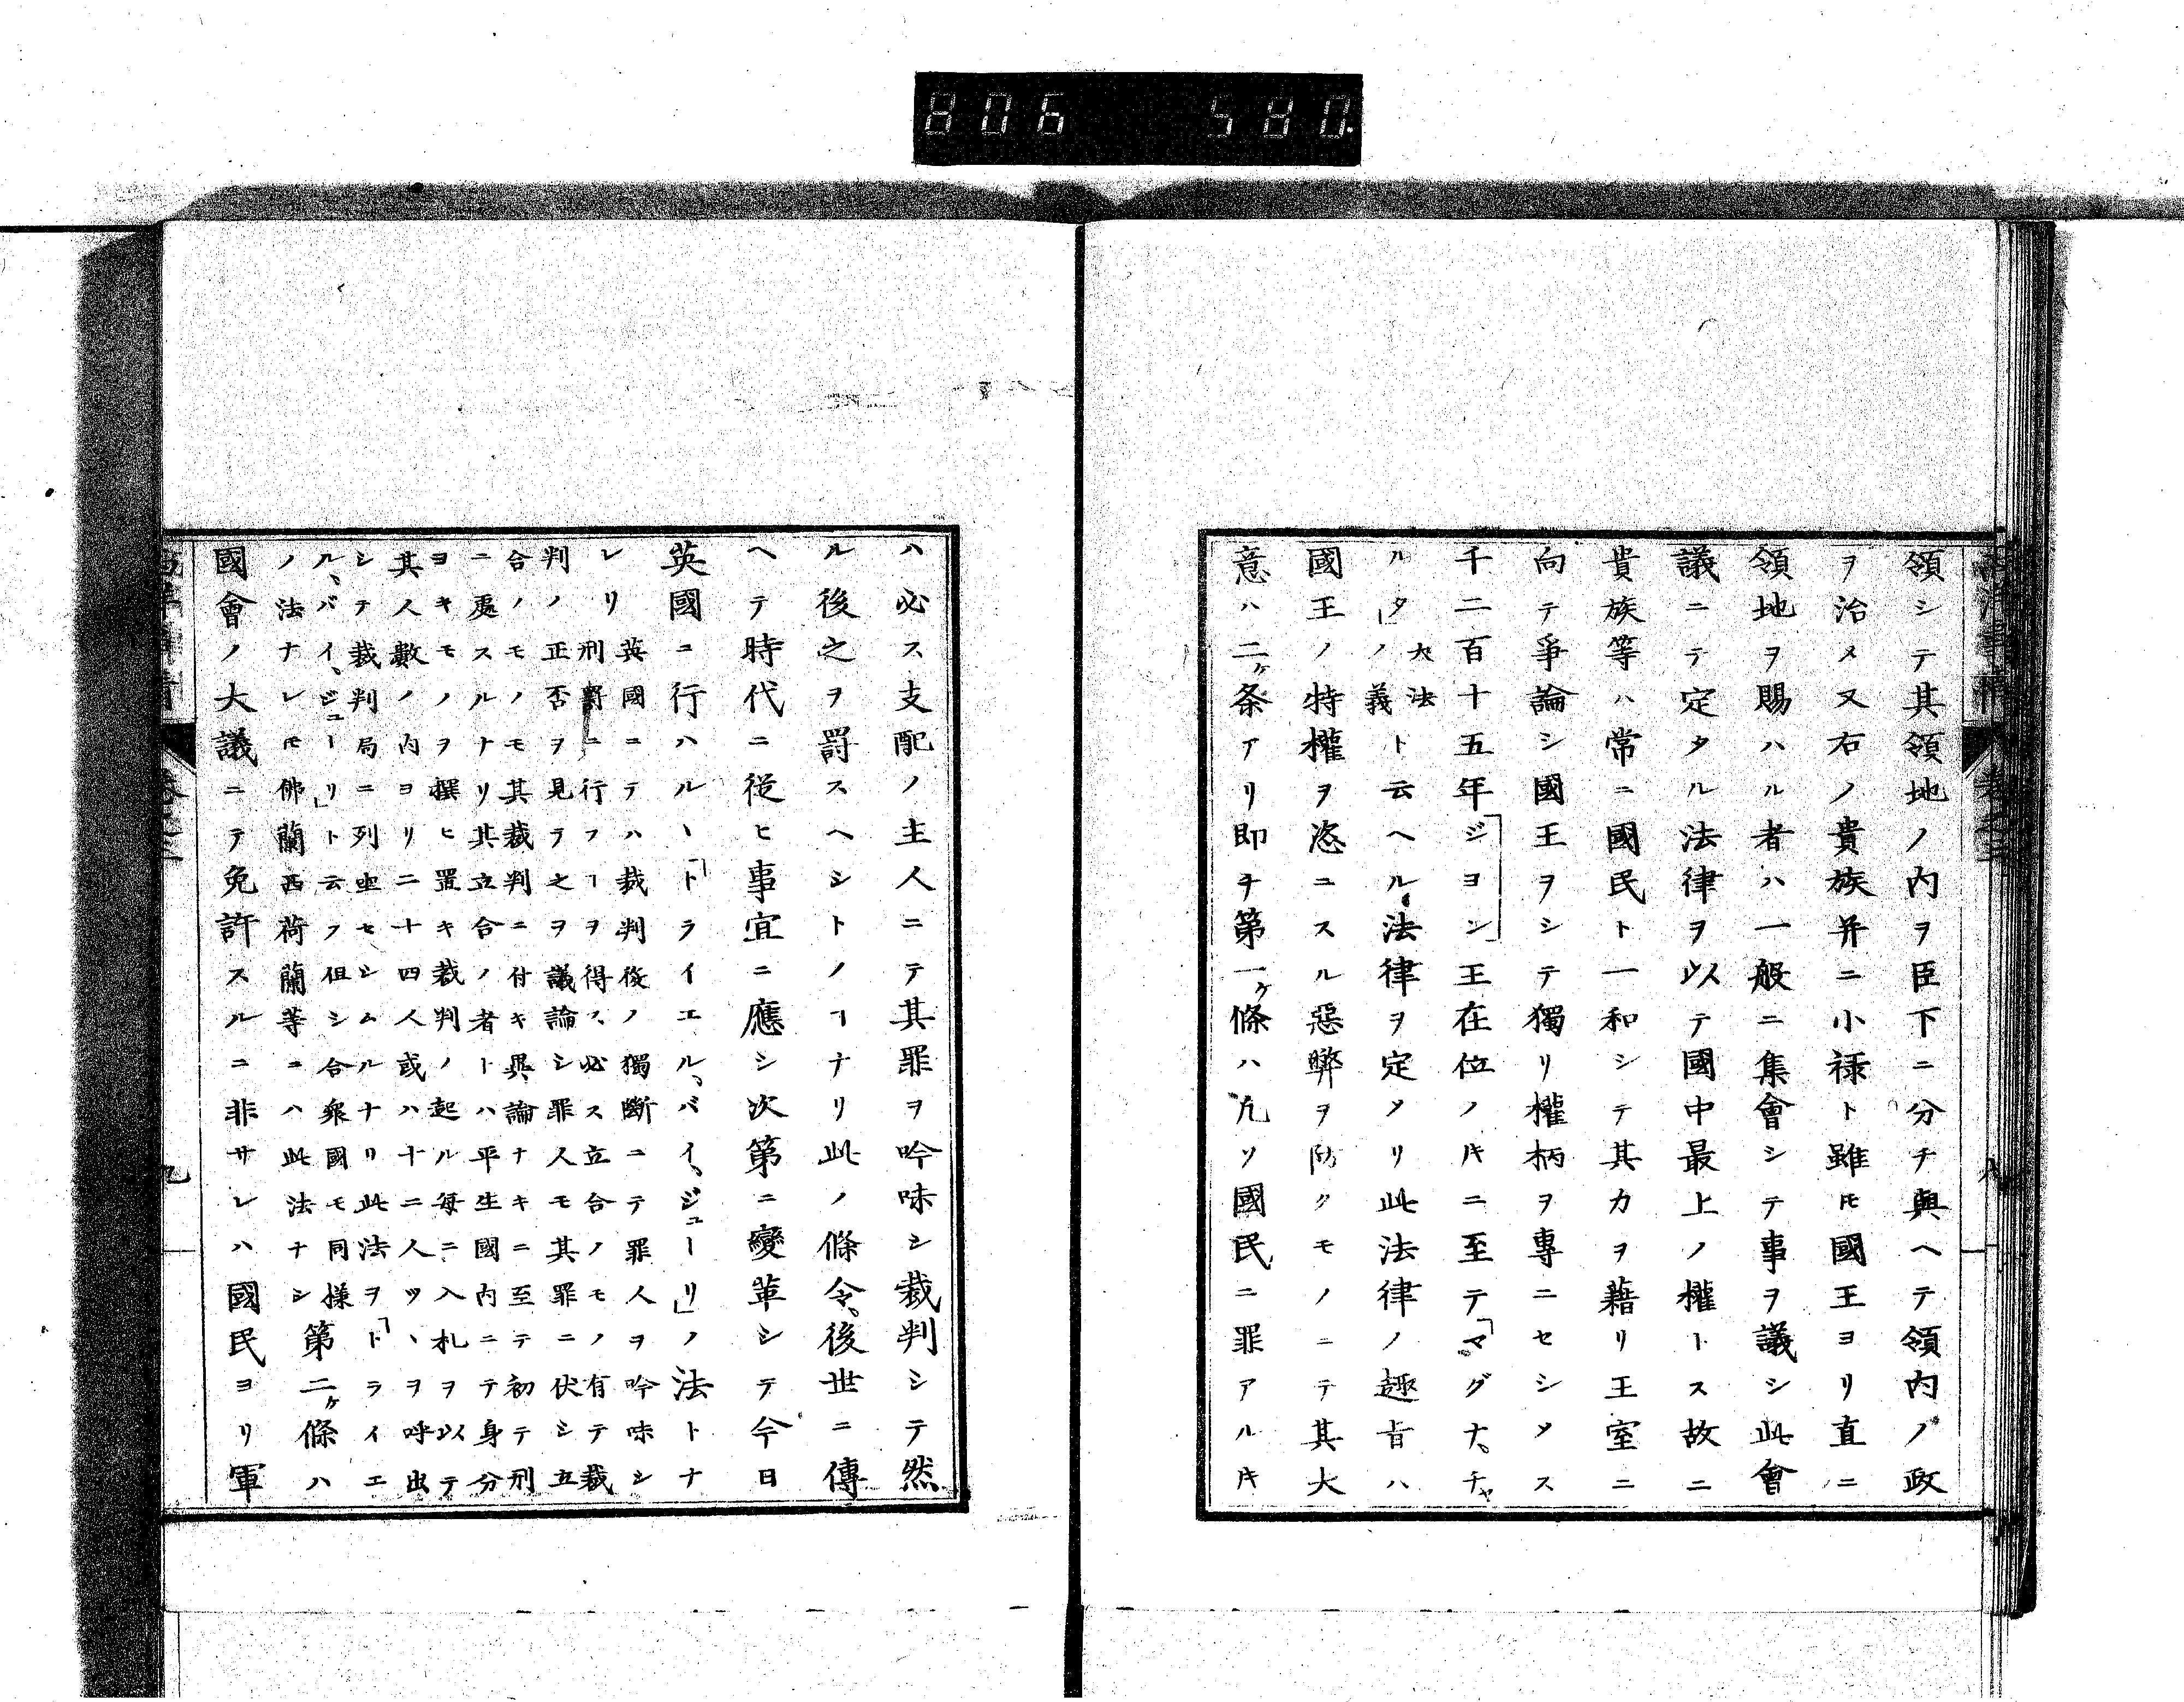 806 580.
領シテ其領地ノ內ヲ臣下ニ分チ與ヘテ領內ノ政
ヲ治メ又右ノ貴族并ニ小禄ト雖𪜈國王ヨリ直ニ
領地ヲ賜ハル者ハ一般ニ集會シテ事ヲ議シ此會
議ニテ定タル法律ヲ以テ國中最上ノ權トス故ニ
貴族等ハ常ニ國民ト一和シテ其力ヲ藉リ王室ニ
向テ爭論シ國王ヲシテ獨リ權柄ヲ專ニセシメス
千二百十五年「ジヨン」王在位ノ𪜀ニ至テ「マグナ。チャ
ルタ」大法ノ義ト云ヘル法律ヲ定メタリ此法律ノ趣旨ハ
國王ノ特權ヲ恣ニスル惡弊ヲ防クモノニテ其大
意ハ二ケ条アリ即チ第一ケ條ハ凡ソ國民ニ罪アル𪜀
八
ハ必ス支配ノ主人ニテ其罪ヲ吟味シ裁判シテ然
ル後之ヲ罰スヘシトノヿナリ此ノ條令。後世ニ傳
ヘテ時代ニ從ヒ事宜ニ應シ次第ニ變革シテ今日
英國ニ行ハルヽ「トライエル、バイ、ジューリ」ノ法トナ
レリ
英國ニテハ裁判役ノ獨斷ニテ罪人ヲ吟味シ
刑罰ニ行フヿヲ得ス、必ス立合ノモノ有テ裁
判ノ正否ヲ見テ之ヲ議論シ罪人モ其罪ニ伏シ立
合ノモノモ其裁判ニ付キ異論ナキニ至テ初テ刑
ニ處スルナリ其立合ノ者トハ平生國內ニテ身分
ヨキモノヲ撰ヒ置キ裁判ノ起ル每ニ入札ヲ以テ
其人數ノ內ヨリ二十四人或ハ十二人ツヽヲ呼出
シテ裁判局ニ列坐セシムルナリ此法ヲ「トライエ
ル、バイ、ジューリ」ト云フ但シ合衆國モ同樣
ノ法ナレ𪜈佛蘭西荷蘭等ニハ此法ナシ
第二ケ條ハ
國會ノ大議ニテ免許スルニ非サレハ國民ヨリ軍
九